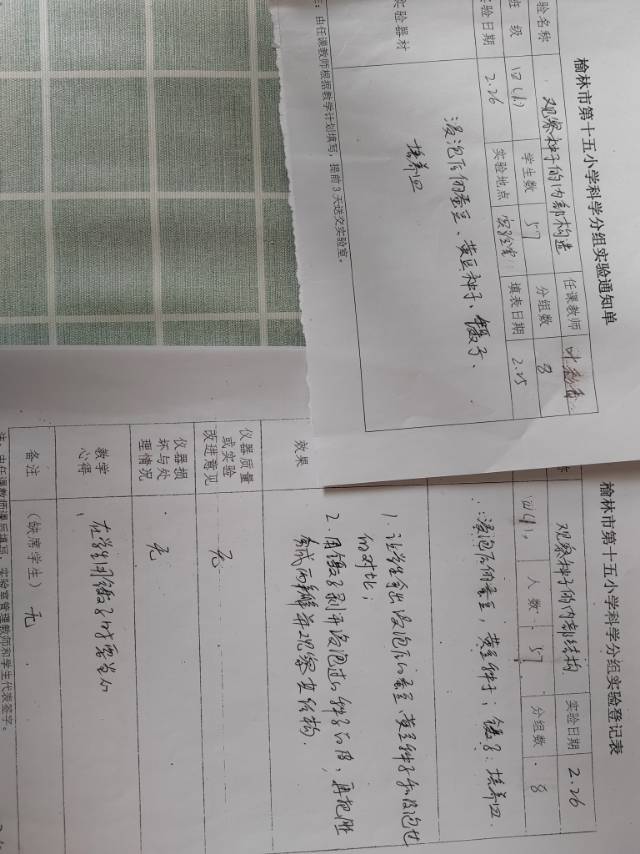 榆林市第十五小学科学分组实验通知单
验名称 观察种子的内部构造 任课教师
班 级 四(1) 学生数 57 分组数 8
验日期 2.26 实验地点 实验室 填表日期 2.25
实验器材 浸泡后的蚕豆、黄豆种子、镊子、
培养皿
:由任课教师根据教学计划填写，提前3天送交实验室。
榆林市第十五小学科学分组实验登记表
观察种子的内部结构 实验日期 2.26
四(1) 人 数 57 分组数 8
浸泡后的蚕豆，黄豆种子；镊子；培养皿
效果 1. 让学生拿出浸泡后的蚕豆、黄豆种子和没泡过
的对比；
2. 用镊子剥开浸泡过的种子的皮，再把胚
分成两瓣并观察其结构.
仪器质量
或实验
改进意见 无
仪器损
坏与处
理情况 无
教学
心得 在学生用镊子时要当心
备注 (缺席学生) 无
注：由任课教师课后填写，实验室管理教师和学生代表签字。